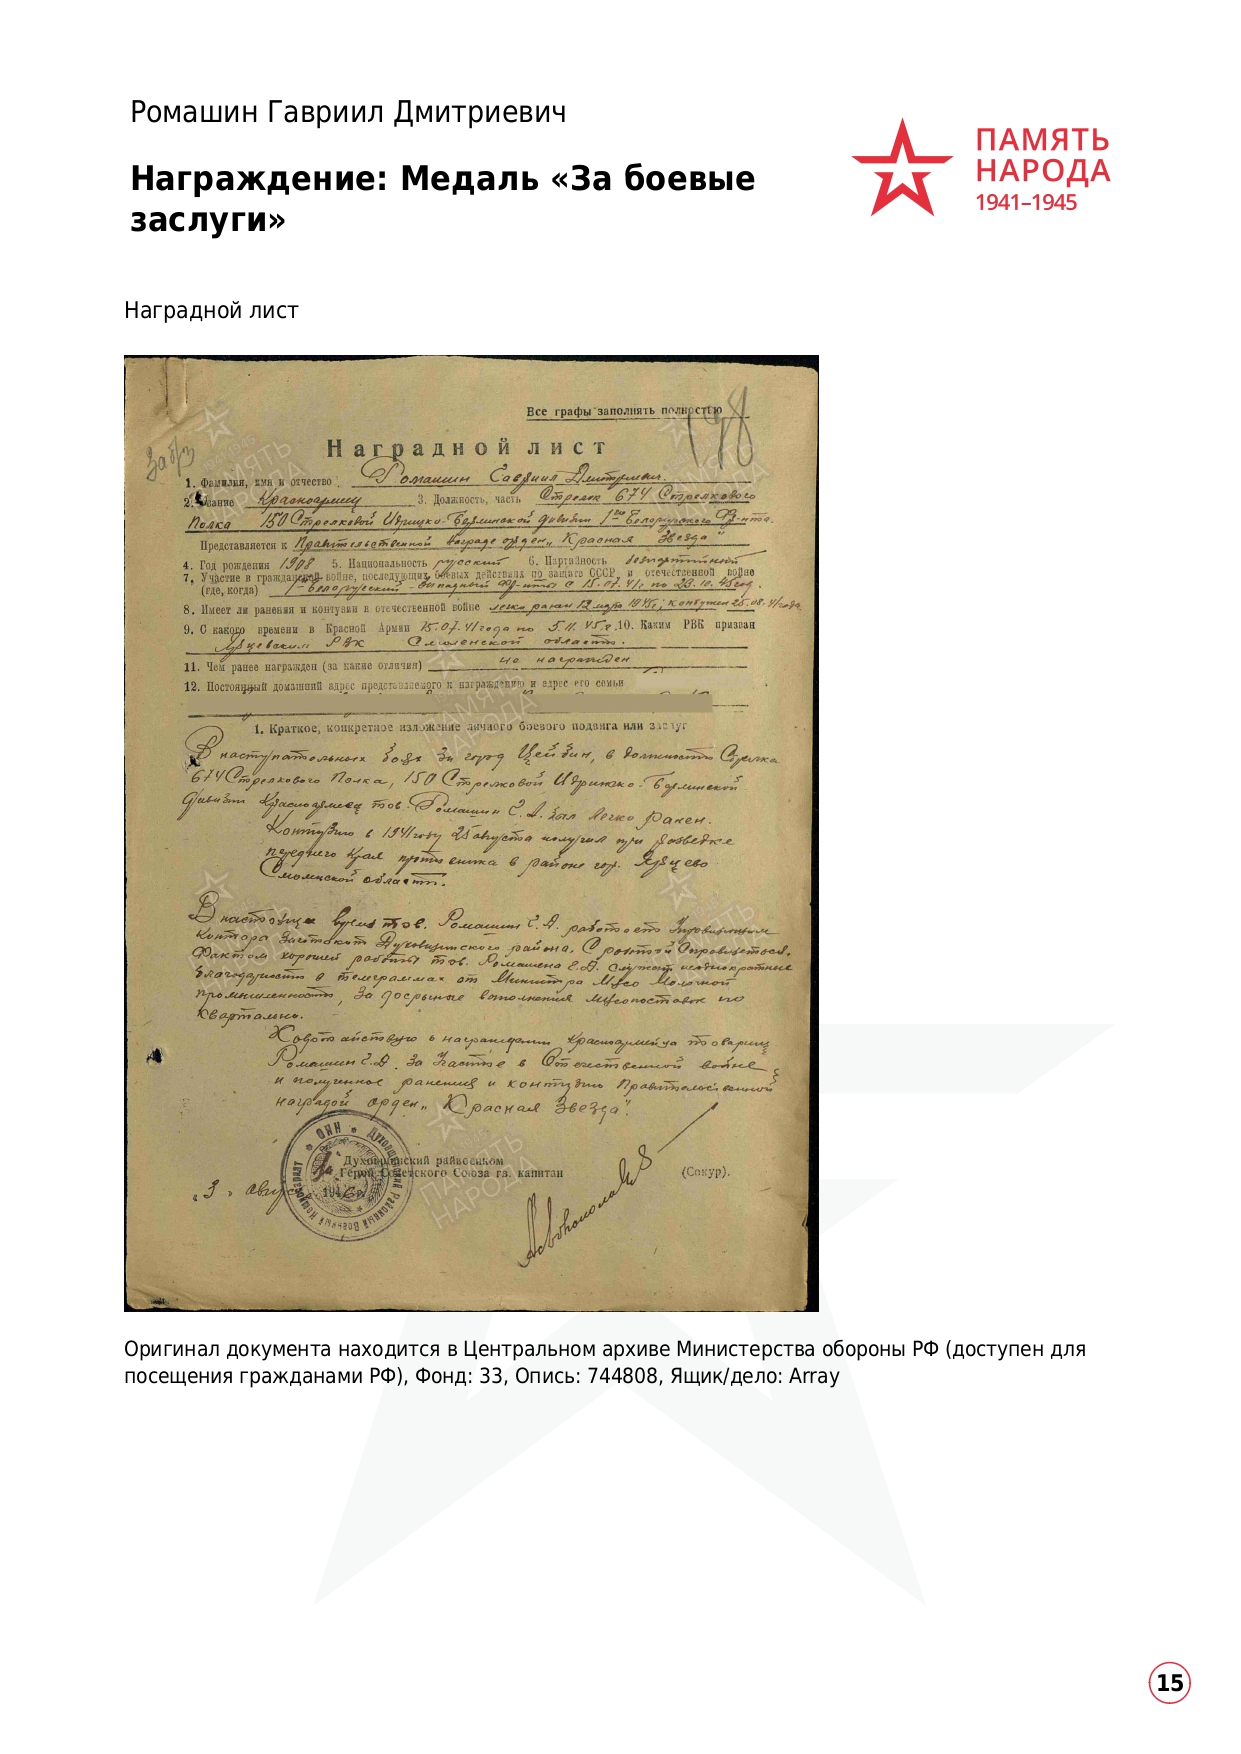 Ромашин Гавриил Дмитриевич
Награждение: Медаль «За боевые
заслуги»
ПАМЯТЬ
НАРОДА
1941–1945
Наградной лист
Все графы заполнять полностью
198
За б/з
Наградной лист
1. Фамилия, имя и отчество Ромашин Гавриил Дмитриевич.
2. Звание Красноармеец 3. Должность, часть Стрелок 674 Стрелкового
Полка 150 Стрелковой Идрицко-Берлинской дивизии 1го Белорусского Фр-нта.
Представляется к Правительственной награде орден „Красная Звезда"
4. Год рождения 1908 5. Национальность русский 6. Партийность беспартийный
7. Участие в гражданской войне, последующих боевых действиях по защите СССР и отечественной войне
(где, когда) 1го Белорусский - Западный Фр-нты с 15.07.41г по 23.10.45год.
8. Имеет ли ранения и контузии в отечественной войне легко ранен 12 марта 1945г; контужен 25.08.41года
9. С какого времени в Красной Армии 15.07.41года по 5.11.45г. 10. Каким РВК призван
Ярцевским РВК Смоленской области.
11. Чем ранее награжден (за какие отличия) не награжден
12. Постоянный домашний адрес представляемого к награждению и адрес его семьи
1. Краткое, конкретное изложение личного боевого подвига или заслуг
В наступательных боях за город Цейбин, в должности Стрелка
674 Стрелкового Полка, 150 Стрелковой Идрицко-Берлинской
дивизии Красноармеец тов. Ромашин Г.Д. был легко ранен.
Контузию в 1941году 25 августа получил при разведке
переднего края противника в районе гор. Ярцево
Смоленской области.
В настоящее время тов. Ромашин Г.Д. работает Управляющим
контора Заготскот Духовщинского района. С работой справляется.
Фактом хорошей работы тов. Ромашина Г.Д. служат неоднократные
благодарности в телеграммах от Министра Мясо Молочной
промышленности, за досрочные выполнения мясопоставок по
квартально.
Ходатайствую о награждении Красноармейца товарищ
Ромашин Г.Д. за участие в Отечественной войне
и полученное ранения и контузию Правительственной
наградой орден „Красная Звезда".
Духовщинский райвоенком
Герой Советского Союза гв. капитан (Сокур).
„3" августа 194
Духовщинский Районный Военный Комиссариат
Оригинал документа находится в Центральном архиве Министерства обороны РФ (доступен для
посещения гражданами РФ), Фонд: 33, Опись: 744808, Ящик/дело: Array
15